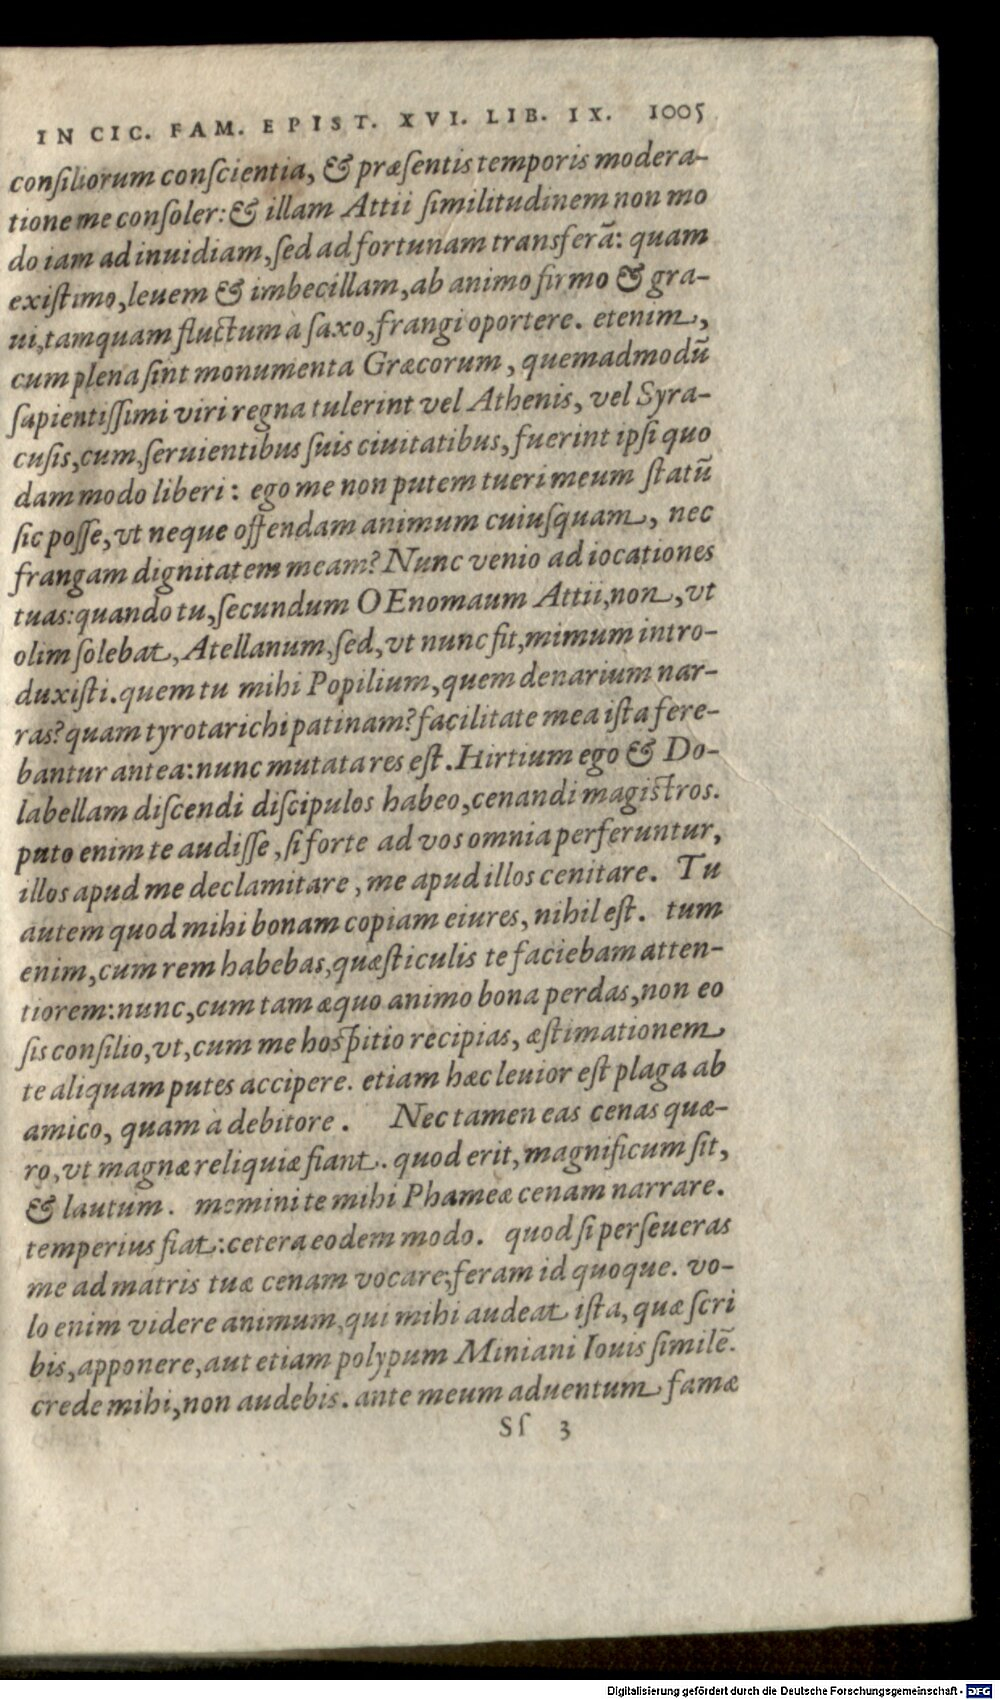 IN CIC. FAM. EPIST. XVI. LIB. IX. 1005
conſiliorum conſcientia, & præſentis temporis modera-
tione me conſoler: & illam Attii ſimilitudinem non mo
do iam ad inuidiam, ſed ad fortunam transferā: quam
exiſtimo, leuem & imbecillam, ab animo firmo & gra-
ui, tamquam fluctum à ſaxo, frangi oportere. etenim,
cum plena ſint monumenta Græcorum, quemadmodū
ſapientiſſimi viri regna tulerint vel Athenis, vel Syra-
cuſis, cum, ſeruientibus ſuis ciuitatibus, fuerint ipſi quo
dam modo liberi: ego me non putem tueri meum ſtatū
ſic poſſe, vt neque offendam animum cuiuſquam, nec
frangam dignitatem meam? Nunc venio ad iocationes
tuas: quando tu, ſecundum OEnomaum Attii, non, vt
olim ſolebat, Atellanum, ſed, vt nunc fit, mimum intro-
duxiſti. quem tu mihi Popilium, quem denarium nar-
ras? quam tyrotarichi patinam? facilitate mea iſta fere-
bantur antea: nunc mutata res eſt. Hirtium ego & Do-
labellam diſcendi diſcipulos habeo, cenandi magiſtros.
puto enim te audiſſe, ſi forte ad vos omnia perferuntur,
illos apud me declamitare, me apud illos cenitare. Tu
autem quod mihi bonam copiam eiures, nihil eſt. tum
enim, cum rem habebas, quæſticulis te faciebam atten-
tiorem: nunc, cum tam æquo animo bona perdas, non eo
ſis conſilio, vt, cum me hoſpitio recipias, æſtimationem
te aliquam putes accipere. etiam hæc leuior eſt plaga ab
amico, quam à debitore. Nec tamen eas cenas quæ-
ro, vt magnæ reliquiæ fiant. quod erit, magnificum ſit,
& lautum. memini te mihi Phameæ cenam narrare.
temperius fiat: cetera eodem modo. quod ſi perſeueras
me ad matris tuæ cenam vocare; feram id quoque. vo-
lo enim videre animum, qui mihi audeat iſta, quæ ſcri
bis, apponere, aut etiam polypum Miniani Iouis ſimilē.
crede mihi, non audebis. ante meum aduentum famæ
Sſ 3
Digitalisierung gefördert durch die Deutsche Forschungsgemeinschaft - DFG